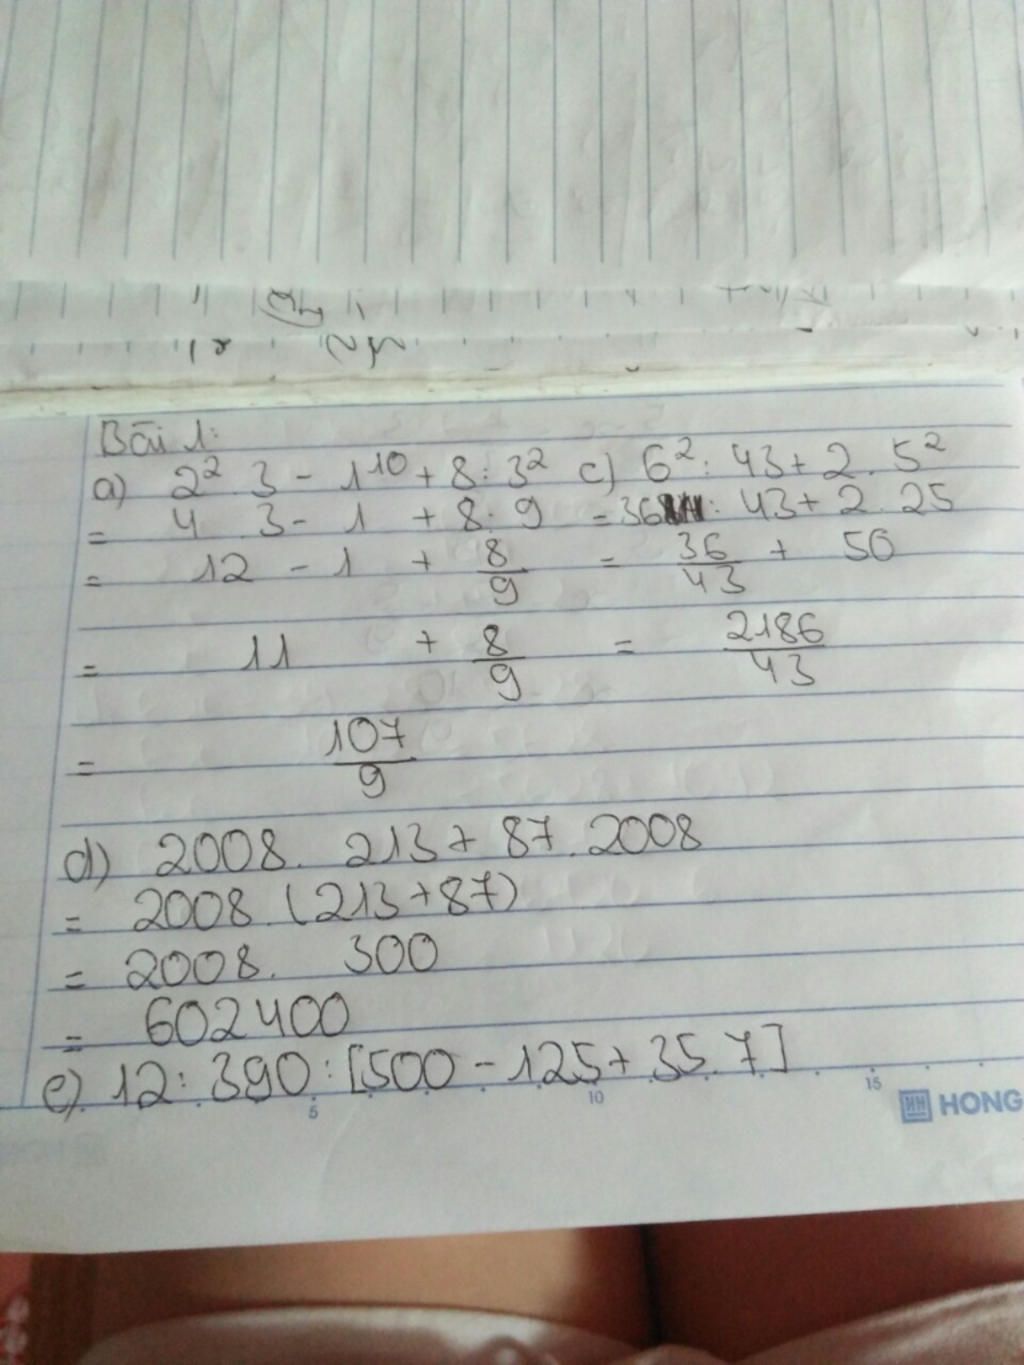 Bài 1:
a) 2² . 3 - 1¹⁰ + 8 : 3²
= 4 . 3 - 1 + 8 : 9
= 12 - 1 + 8/9
= 11 + 8/9
= 107/9
c) 6² : 43 + 2 . 5²
= 36 : 43 + 2 . 25
= 36/43 + 50
= 2186/43
d) 2008 . 213 + 87 . 2008
= 2008 . (213 + 87)
= 2008 . 300
= 602400
e) 12 : 390 : [500 - 125 + 35 . 7]
5 10 15
HH HONG